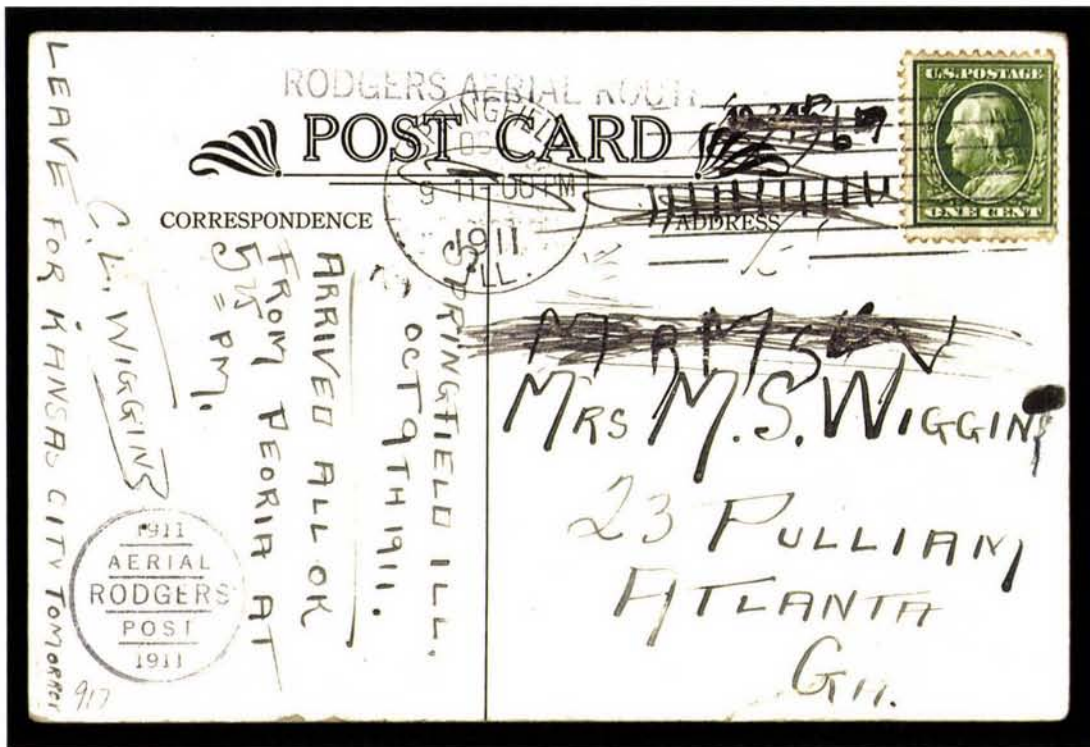 RODGERS AERIAL ROUTE
POST CARD
CORRESPONDENCE
ADDRESS
U.S. POSTAGE
ONE CENT
SPRINGFIELD
9 11-00 PM
1911
ILL.
SPRINGFIELD ILL.
OCT 9TH 1911.
ARRIVED ALL OK
FROM PEORIA AT
525 = PM.
C. L. WIGGINS
LEAVE FOR KANSAS CITY TOMORROW
1911
AERIAL
RODGERS
POST
1911
917
MRS M.S. WIGGINS
23 PULLIAM
ATLANTA
GA.